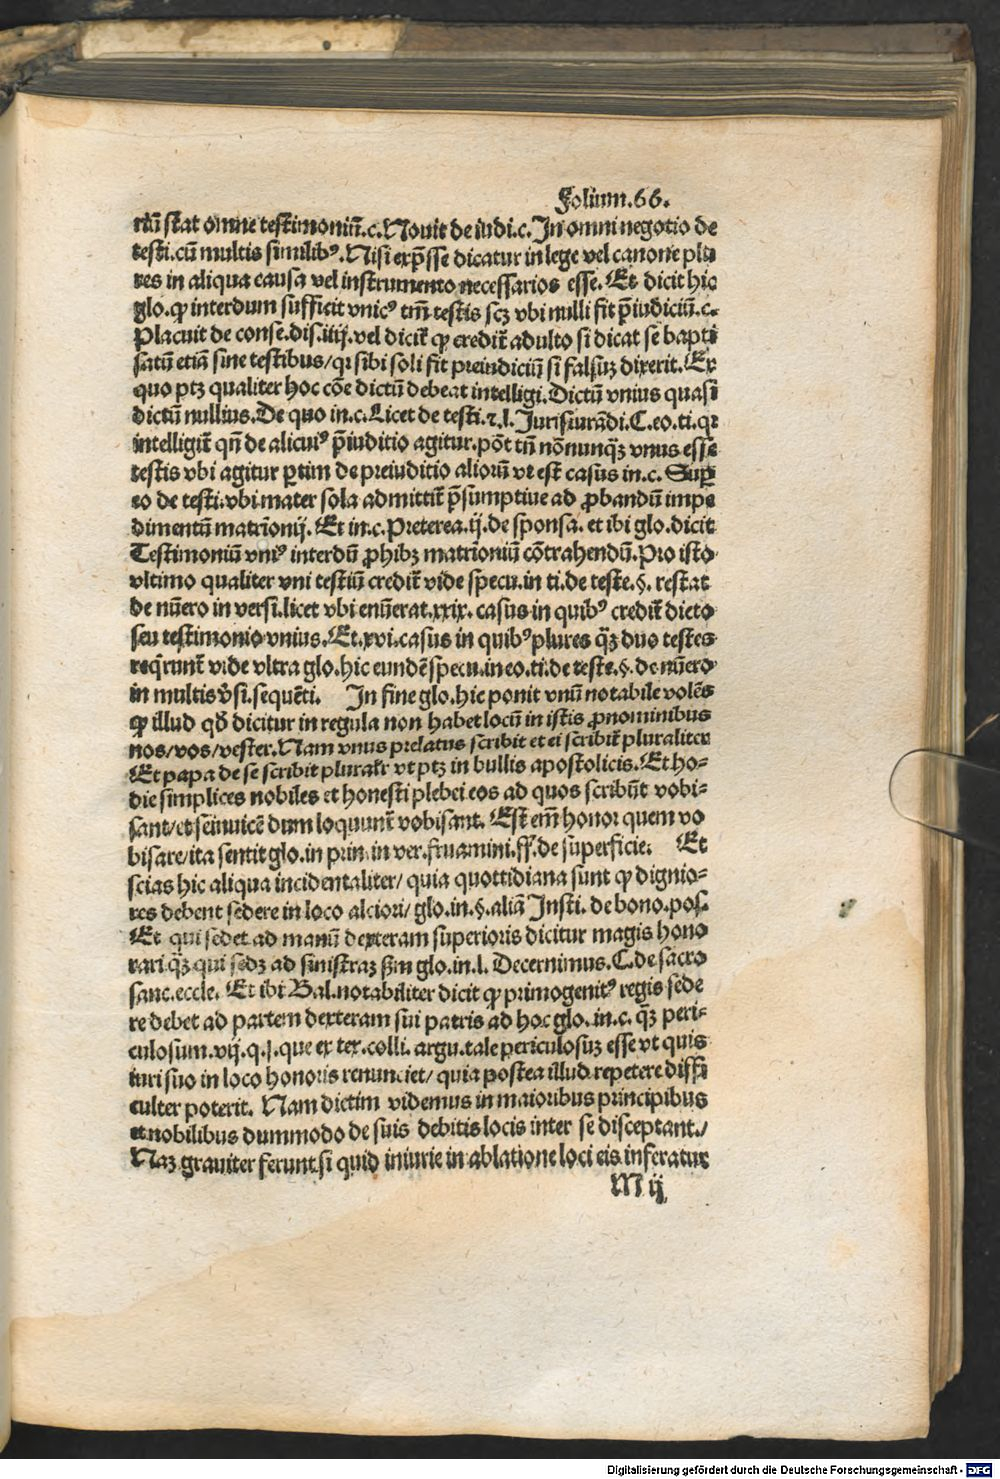 Folium.66.
riũ stat omne testimoniũ.c. Nouit de iudi.c. In omni negotio de
testi.cũ multis similibꝰ. Nisi exp̃sse dicatur in lege vel canone plu
res in aliqua causa vel instrumento necessarios esse. Et dicit hic
glo. ꝙ interdum sufficit vnicꝰ tm̃ testis scꝫ vbi nulli fit p̃iudiciũ.c.
Placuit de conse.dis.iiij.vel dicit̃ ꝙ credit̃ adulto si dicat se bapti
satũ etiã sine testibus/ qꝛ sibi soli fit preiudiciũ si falsuꝫ dixerit. Ex
quo ptꝫ qualiter hoc cõe dictũ debeat intelligi. Dictũ vnius quasi
dictũ nullius. De quo in.c. Licet de testi.⁊.l. Jurisiurãdi. C.eo.ti.qꝛ
intelligit̃ qñ de alicuiꝰ p̃iuditio agitur. põt tñ nõnunqꝫ vnus esse
testis vbi agitur ꝑtim de preiuditio aliorũ vt est casus in.c. Suꝑ
eo de testi.vbi mater sola admittit̃ p̃sumptiue ad ꝓbandũ impe
dimentũ matrĩonij. Et in.c. Preterea.ij.de sponsa. et ibi glo. dicit
Testimoniũ vniꝰ interdũ ꝓhibꝫ matrĩoniũ cõtrahendũ. Pro isto
vltimo qualiter vni testiũ credit̃ vide specu.in ti.de teste.§. restat
de nũero in versi.licet vbi enũerat.xxix. casus in quibꝰ credit̃ dicto
seu testimonio vnius. Et.xvi.casus in quibꝰ plures qꝫ duo testes
reqrunt̃ vide vltra glo.hic eundẽ specu.in eo.ti.de teste.§.de nũero
in multis v̾si.sequẽti. In fine glo.hic ponit vnũ notabile volẽs
ꝙ illud qđ dicitur in regula non habet locũ in istis ꝓnominibus
nos/vos/vester. Nam vnus prelatus scribit et ei scribit̃ pluraliter
Et papa de se scribit pluralr̃ vt ptꝫ in bullis apostolicis. Et ho-
die simplices nobiles et honesti plebei eos ad quos scribũt vobi-
sant/et seinuicẽ dum loquunt̃ vobisant. Est em̃ honor quem vo
bisare/ita sentit glo.in prin.in ver.fruamini.ff.de superficie. Et
scias hic aliqua incidentaliter/ quia quottidiana sunt ꝙ dignio-
res debent sedere in loco alciori/ glo.in.§.aliã Insti. de bono.pos.
Et qui sedet ad manũ dexteram superioris dicitur magis hono
rari qꝫ qui sedꝫ ad sinistraꝫ ẜm glo.in.l. Decernimus. C.de sacro
sanc.eccle. Et ibi Bal.notabiliter dicit ꝙ primogenitꝰ regis sede
re debet ad partem dexteram sui patris ad hoc glo.in.c. qꝫ peri-
culosum.vij.q.j.que ex tex.colli. argu.tale periculosuꝫ esse vt quis
iuri suo in loco honoris renunciet/ quia postea illud repetere diffi
culter poterit. Nam dictim videmus in maioribus principibus
et nobilibus dummodo de suis debitis locis inter se disceptant./
Naꝫ grauiter ferunt si quid iniurie in ablatione loci eis inferatur
M ij
Digitalisierung gefördert durch die Deutsche Forschungsgemeinschaft - DFG